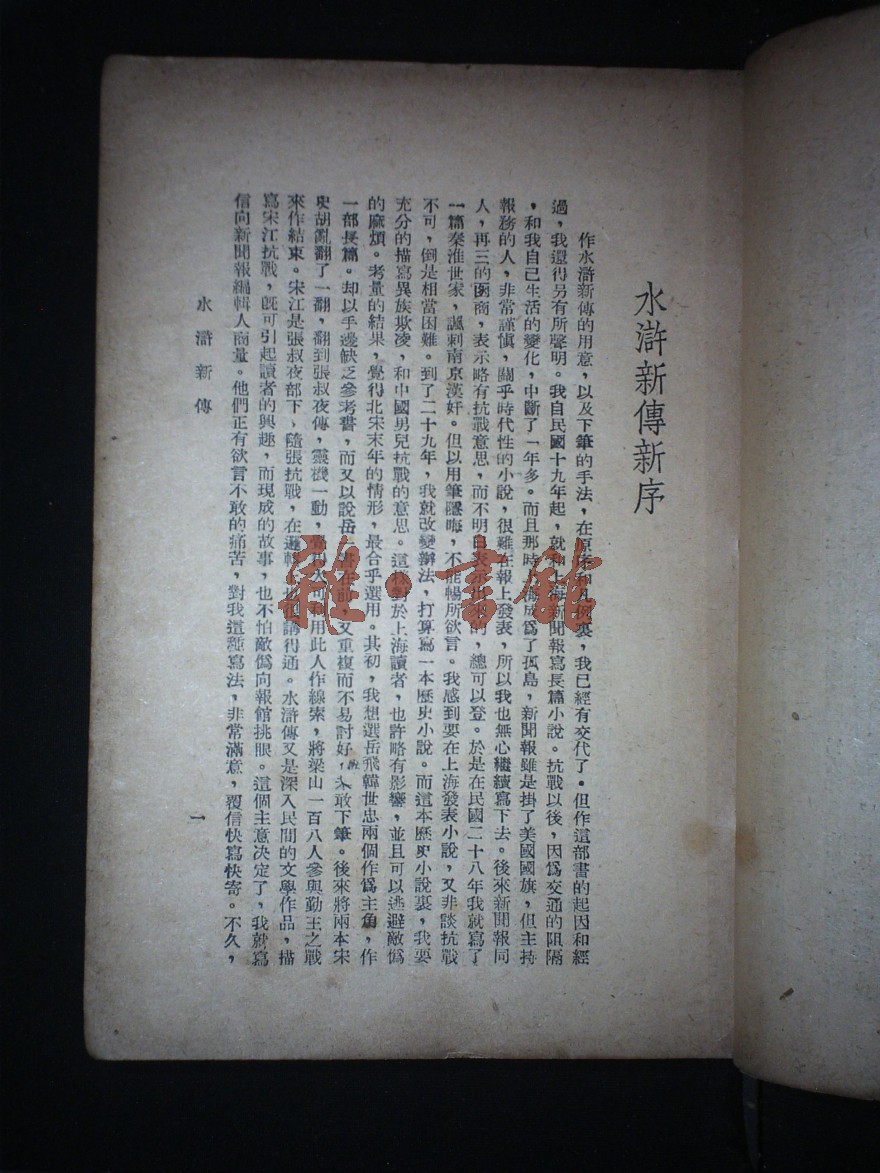 水滸新傳新序
作水滸新傳的用意，以及下筆的手法，在原序和凡例裏，我已經有交代了。但作這部書的起因和經
過，我還得另有所聲明。我自民國十九年起，就和上海新聞報寫長篇小說。抗戰以後，因爲交通的阻隔
，和我自己生活的變化，中斷了一年多。而且那時上海成爲了孤島，新聞報雖是掛了美國國旗，但主持
報務的人，非常謹慎，關乎時代性的小說，很難在報上發表，所以我也無心繼續寫下去。後來新聞報同
人，再三的函商，表示略有抗戰意思，而不明白表示出來的，總可以登。於是在民國二十八年我就寫了
一篇秦淮世家，諷刺南京漢奸。但以用筆隱晦，不能暢所欲言。我感到要在上海發表小說，又非談抗戰
不可，倒是相當困難。到了二十九年，我就改變辦法，打算寫一本歷史小說。而這本歷史小說裏，我要
充分的描寫異族欺凌，和中國男兒抗戰的意思。這樣對於上海讀者，也許略有影響，並且可以逃避敵僞
的麻煩。考量的結果，覺得北宋末年的情形，最合乎選用。其初，我想選岳飛韓世忠兩個作爲主角，作
一部長篇。却以手邊缺乏參考書，而又以說岳一書在前，又重複而不易討好，未敢下筆。後來將兩本宋
史胡亂翻了一翻，翻到張叔夜傳，靈機一動，覺得大可利用此人作線索，將梁山一百八人參與勤王之戰
來作結束。宋江是張叔夜部下，隨張抗戰，在邏輯上也很講得通。水滸傳又是深入民間的文學作品，描
寫宋江抗戰，既可引起讀者的興趣，而現成的故事，也不怕敵僞向報館挑眼。這個主意決定了，我就寫
信向新聞報編輯人商量。他們正有欲言不敢的痛苦，對我這種寫法，非常滿意，覆信快寫快寄。不久，
水滸新傳
一
雅·書館